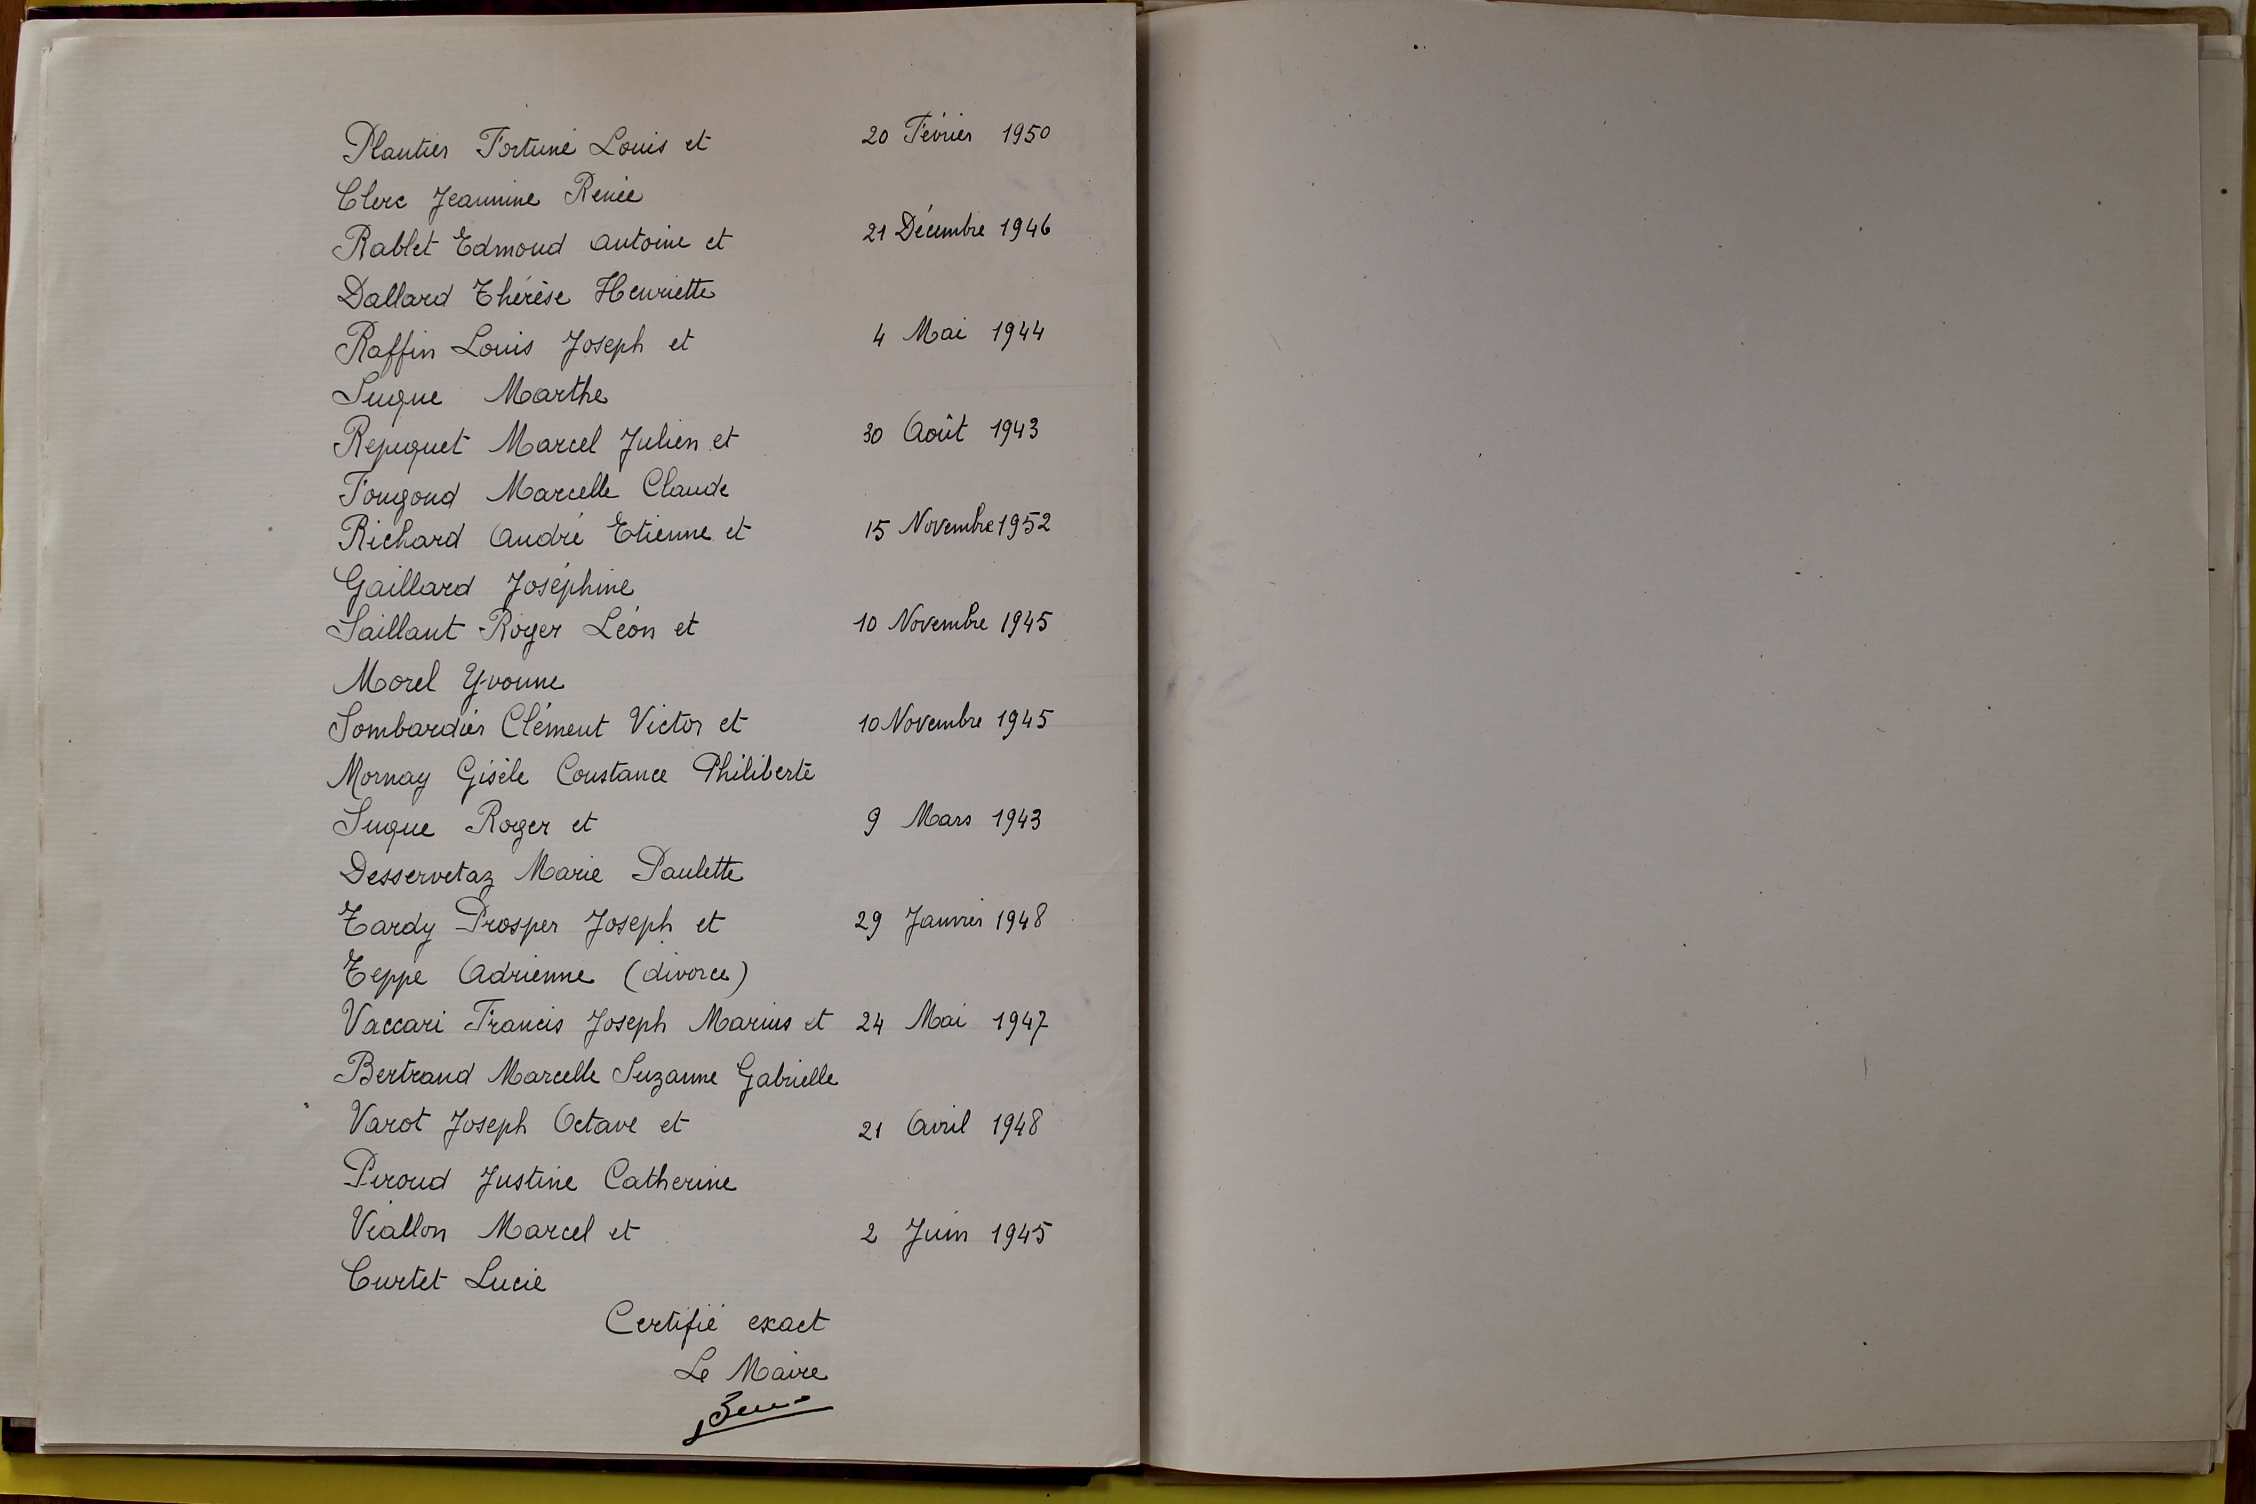 Plantier Fortuné Louis et 20 Février 1950
Clerc Jeannine Renée
Rablet Edmond Antoine et 21 Décembre 1946
Dallard Thérèse Henriette
Raffin Louis Joseph et 4 Mai 1944
Suque Marthe
Repuquet Marcel Julien et 30 Août 1943
Fougond Marcelle Claude
Richard André Etienne et 15 Novembre 1952
Gaillard Joséphine
Saillant Roger Léon et 10 Novembre 1945
Morel Yvonne
Sombardier Clément Victor et 10 Novembre 1945
Mornay Gisèle Constance Philiberte
Suque Roger et 9 Mars 1943
Desservetaz Marie Paulette
Tardy Prosper Joseph et 29 Janvier 1948
Teppe Adrienne (divorce)
Vaccari Francis Joseph Marius et 24 Mai 1947
Bertrand Marcelle Suzanne Gabrielle
Varot Joseph Octave et 21 Avril 1948
Piroud Justine Catherine
Viallon Marcel et 2 Juin 1945
Curtet Lucie
Certifié exact
Le Maire